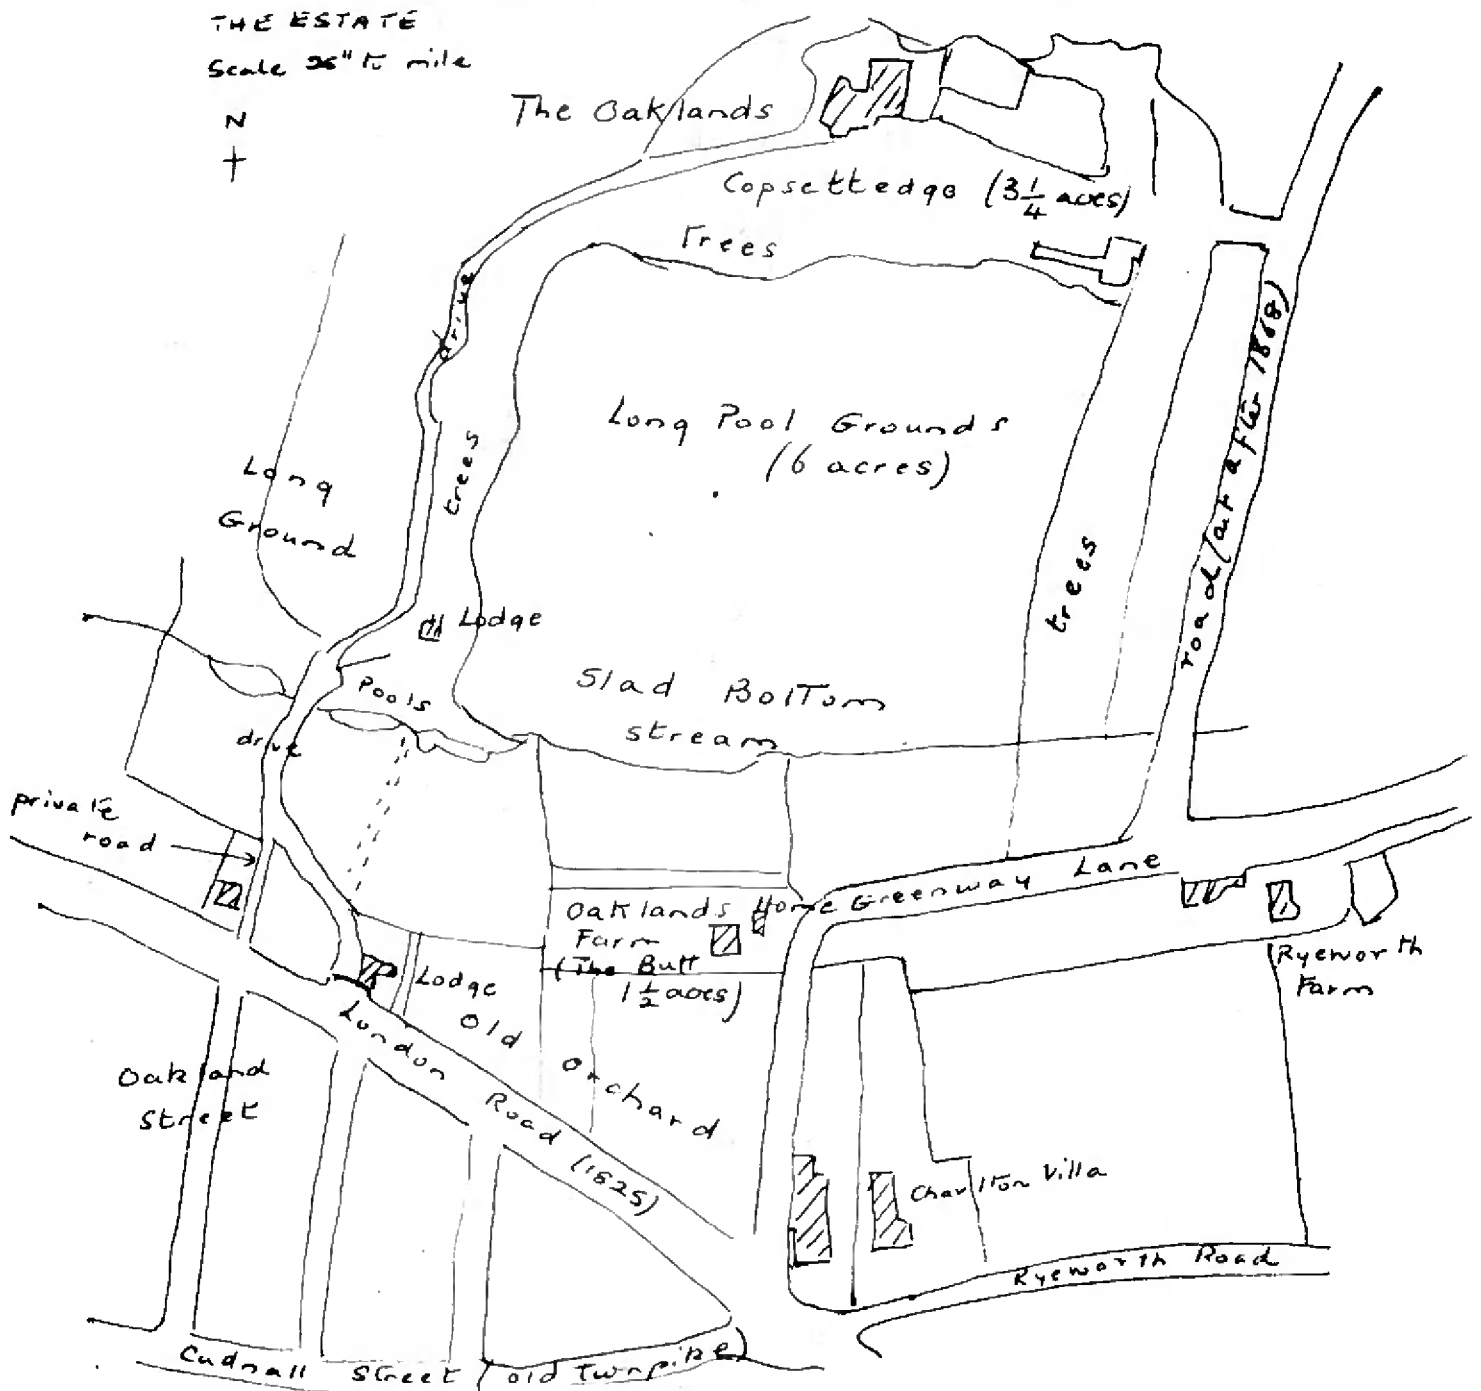 THE ESTATE
Scale 26" to mile
N
The Oaklands
Copsettedge (3 1/4 acres)
Trees
drive
Long Pool Grounds
(6 acres)
road (at after 1868)
trees
Long
Ground
trees
Lodge
Pools
Slad Bottom
stream
drive
private
road
Oaklands Home
Farm
(The Butt
1 1/2 acres)
Greenway Lane
Ryeworth
Farm
Lodge
Old
Orchard
London Road (1825)
Oakland
Street
Charlton Villa
Ryeworth Road
Cudnall Street (old Turnpike)